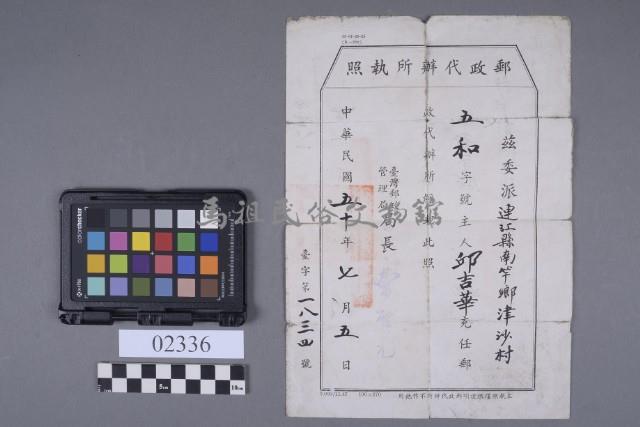 郵政代辦所執照
茲委派連江縣南竿鄉津沙村
五和字號主人邱吉華充任郵
政代辦所
此照
臺灣郵政
管理局局長
中華民國五十年七月五日
臺字第一八三四號
馬祖民俗文物館
colorchecker
x-rite
02336
5cm
10cm